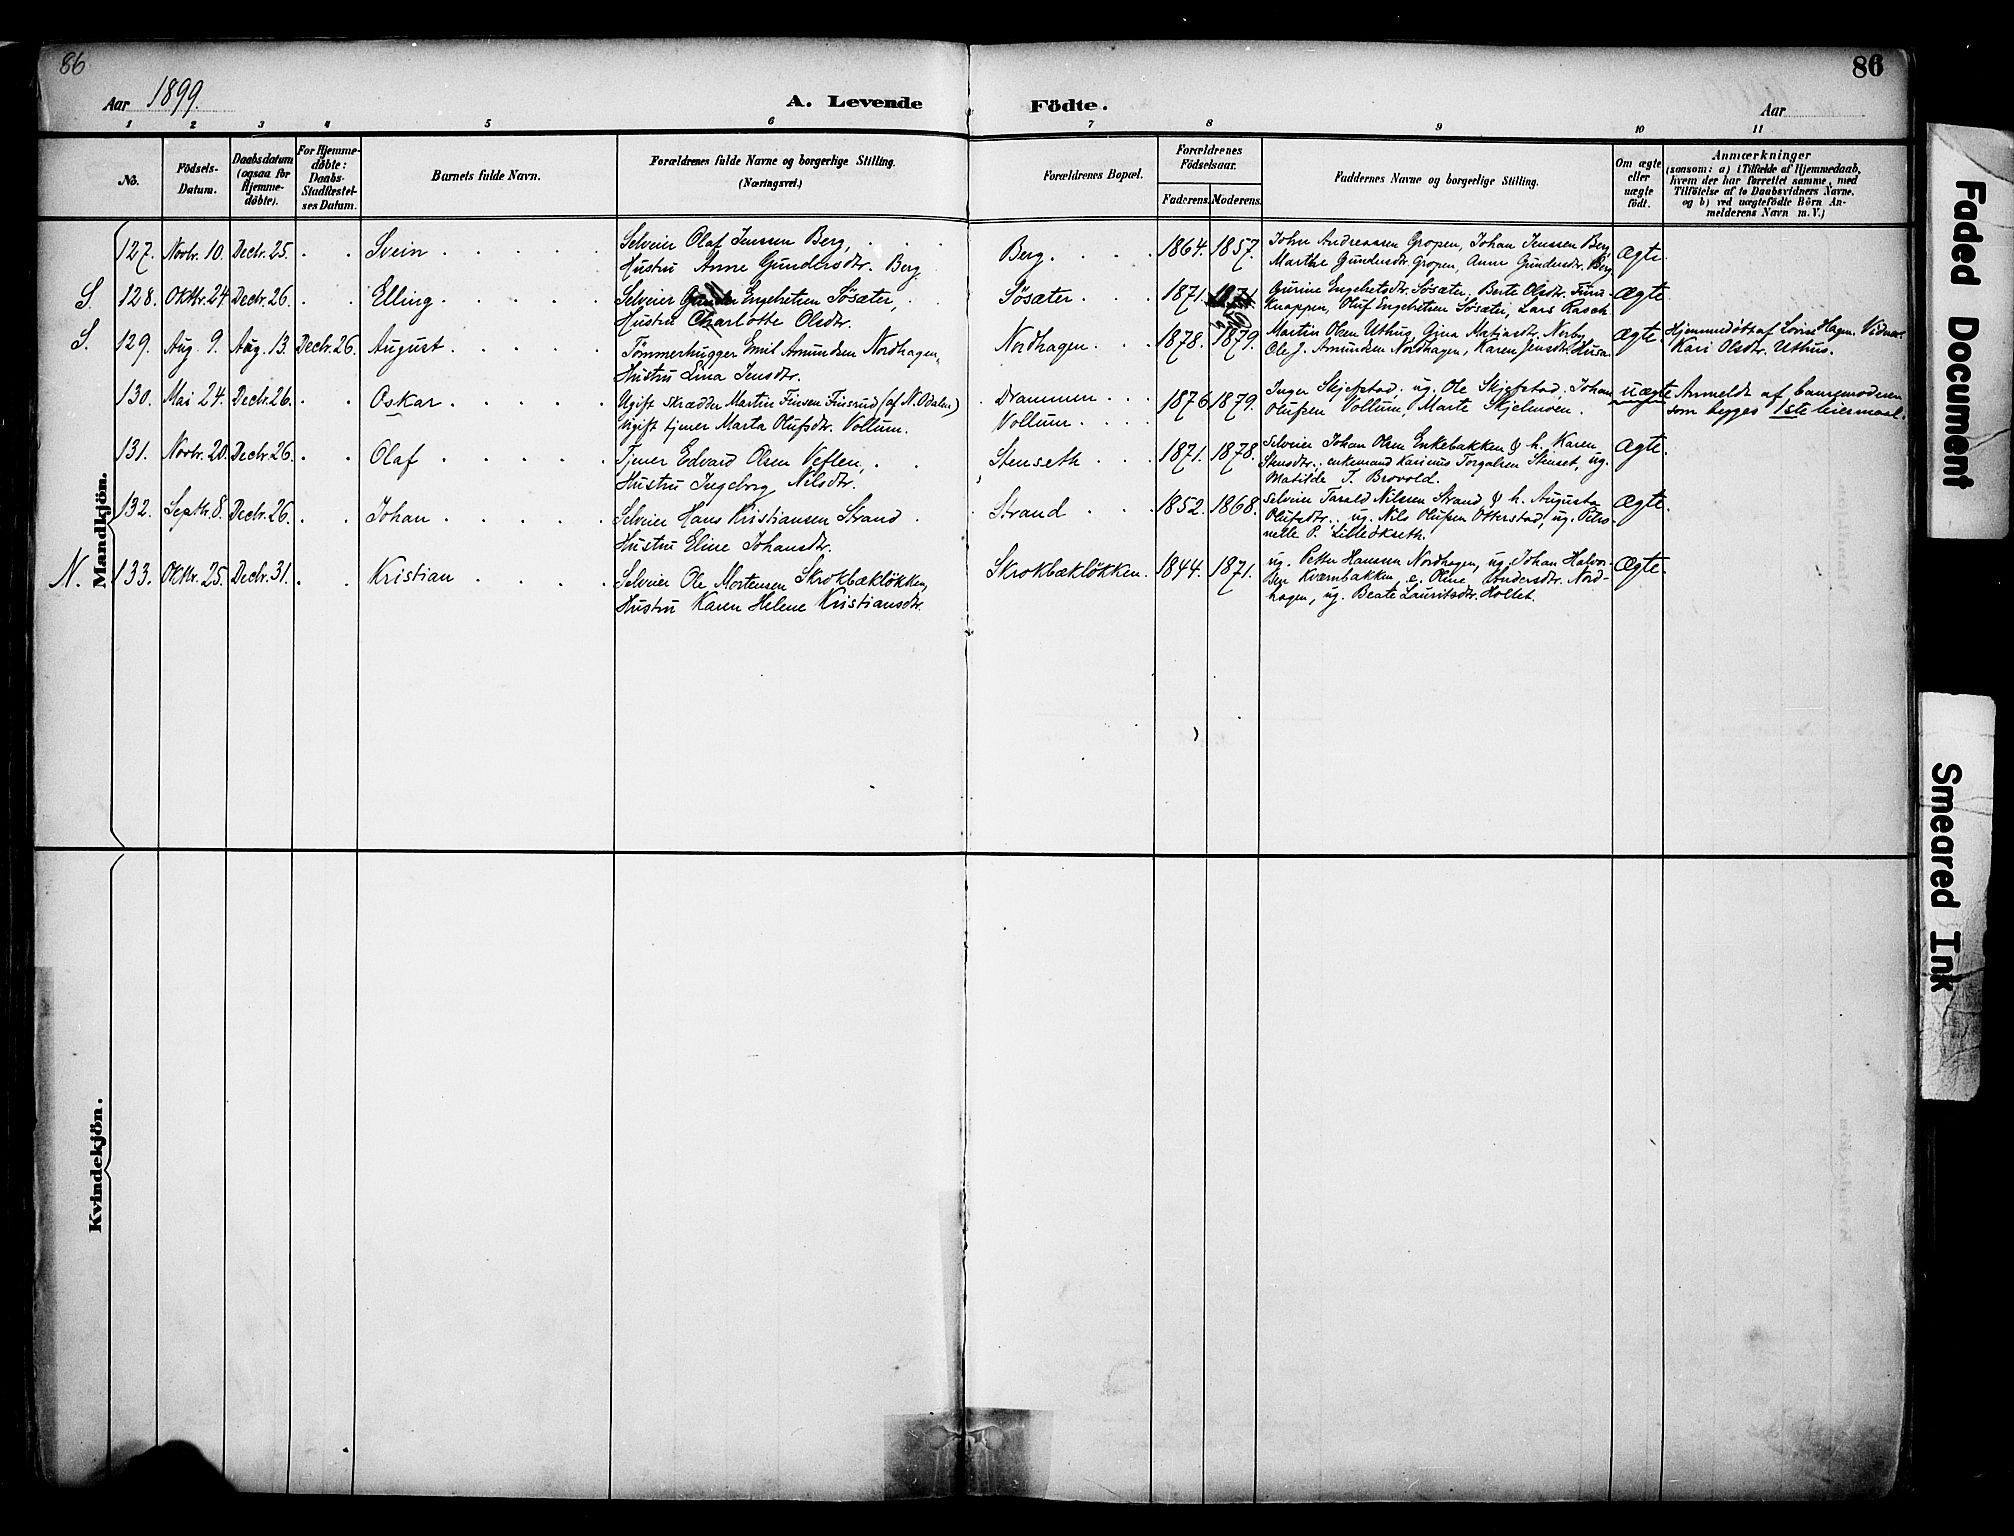 86
86
Aar 1899.
A. Levende Födte.
Aar
1 2 3 4 5 6 7 8 9 10 11
No.
Födsels-Datum.
Daabsdatum (ogsaa for Hjemme-döbte).
For Hjemme-döbte: Daabs-Stadfæstel-ses Datum.
Barnets fulde Navn.
Forældrenes fulde Navne og borgerlige Stilling. (Næringsvei.)
Forældrenes Bopæl.
Forældrenes Födselsaar.
Faderens. Moderens.
Faddernes Navne og borgerlige Stilling.
Om ægte eller uægte födt.
Anmærkninger
(saasom: a) i Tilfælde af Hjemmedaab, hvem der har forrettet samme, med Tilföielse af to Daabsvidners Navne, og b) ved uægtefödte Börn An-melderens Navn m. V.)
Mandkjön.
127. Novbr. 10. Decbr. 25. Svein
Selveier Olaf Jenssen Berg,
Hustru Anne Gundersdtr. Berg
Berg. 1864. 1857.
John Andreassen Gropen, Johan Jenssen Berg
Marthe Gundersdtr. Gropen, Anne Gundersdtr. Berg
Ægte.
S. 128. Oktbr. 24 Decbr. 26. Elling
Selveier Engebretsen Søsæter,
Hustru Charlotte Olsdtr.
Søsæter 1871.
Gurine Engebretsdtr. Søsæter, Berte Olsdtr. Furu-
Knappen, Oluf Engebretsen Søsæter, Lars Rasch.
Ægte
S. 129. Aug. 9. Aug. 13. Decbr. 26. August
Tømmerhugger Emil Amundsen Nordhagen,
Hustru Lina Jensdtr.
Nordhagen. 1878. 1879.
Martin Olsen Uthus, Gina Mathiasdtr. Norby,
Ole J. Amundsen Nordhagen, Karen Jensdtr.
Ægte.
Hjemmedøbt af Lovise Hagen. Vidner
Kari Olsdtr. Uthus.
130. Mai 24. Decbr. 26. Oskar
Ugift skrædder Martin Finsen Finsrud (af N. Odalen)
Ugift tjener Marta Olufsdtr. Vollum.
Drammen
Vollum 1876 1879.
Inger Skjefstad, ug. Ole Skjefstad, Johan
Olufsen Vollum, Marte Skjelmoen.
uægte
Anmeldt af barnemoderen
som begges 1ste leiermaal.
131. Novbr. 20. Decbr. 26. Olaf
Tjener Edvard Olsen Veflen,
Hustru Ingeborg Nilsdtr.
Stenseth 1871. 1878.
Selveier Johan Olsen Enkebakken & h. Karen
Stensdtr., enkemand Karinus Torgalsen Stenset, ug.
Matilde T. Brovold.
Ægte.
132. Septbr. 8. Decbr. 26. Johan
Selveier Hans Kristiansen Strand
Hustru Eline Johansdtr.
Strand 1852. 1868.
Selveier Tarald Nilssen Strand & h. Augusta
Olufsdtr., ug. Nils Olufsen Otterstad, ug. Petro-
nelle P. Lilleøkseth.
Ægte.
N. 133. Oktbr. 25. Decbr. 31. Kristian
Selveier Ole Mortensen Skrokbækløkken,
Hustru Karen Helene Kristiansdtr.
Skrokbækløkken. 1844. 1871.
ug. Petter Hansen Nordhagen, ug. Johan Halvor-
sen Kværnbakken, e. Oline Andersdtr. Nord-
hagen, ug. Beate Lauritsdtr. Holtet.
Ægte.
Kvindekjön.
Faded Document
Smeared Ink